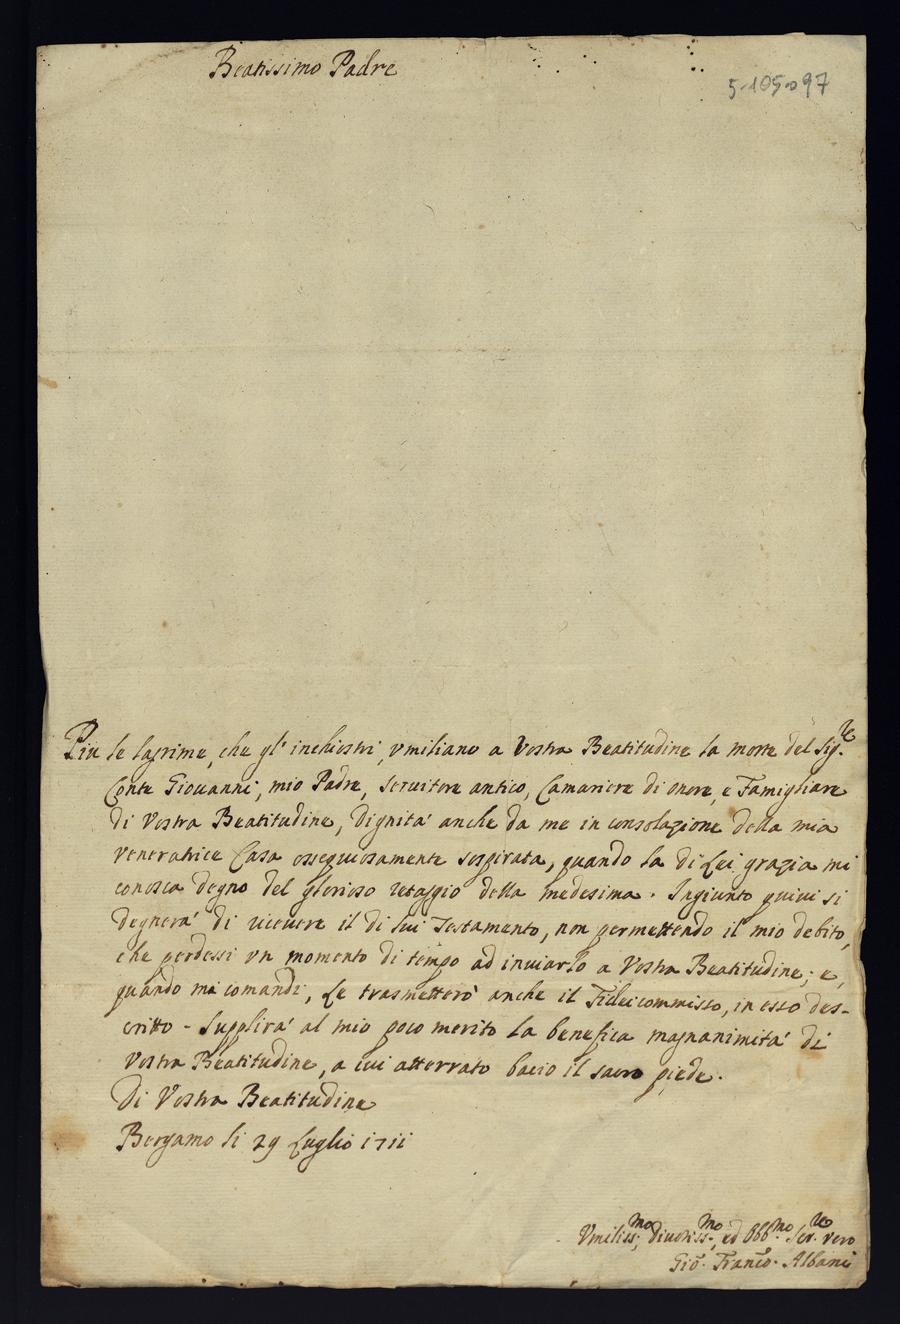 Beatissimo Padre
5-105-097
Più le lagrime, che gl' inchiostri, vmiliano a Vostra Beatitudine la morte del Sig.re
Conte Giouanni, mio Padre, seruitore antico, Camariere di onore, e Famigliare
di Vostra Beatitudine, Dignità anche da me in consolazione della mia
veneratrice Casa ossequiosamente sospirata, quando la di Lei grazia mi
conosca degno del glorioso retaggio della medesima. Ingiunto quiui si
degnerà di riceuere il di lui Testamento, non permettendo il mio debito,
che perdessi vn momento di tempo ad inuiarlo a Vostra Beatitudine; e,
quando mi comandi, Le trasmetterò anche il Fideicommisso, in esso des-
critto - Supplirà al mio poco merito la benefica magnanimità di
Vostra Beatitudine, a cui atterrato bacio il sacro piede.
Di Vostra Beatitudine
Bergamo li 29 Luglio 1711
Vmiliss.mo, diuotiss.mo, ed Obb.mo Ser.re vero
Gio. Franco. Albani